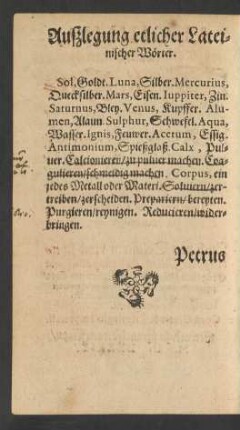 Außlegung etlicher Latei-
nischer Wörter.
Sol, Goldt. Luna, Silber. Mercurius,
Quecksilber. Mars, Eisen. Iuppiter, Zin.
Saturnus, Bley. Venus, Kupffer. Alu-
men, Alaun. Sulphur, Schwefel. Aqua,
Wasser. Ignis, Feuwer. Acetum, Essig.
Antimonium, Spießglaß. Calx, Pul-
uer. Calcionieren/zu puluer machen. Coa-
gulieren/schmeidig machen. Corpus, ein
jedes Metall oder Materi. Soluiern/zer-
treiben/zerscheiden. Prepariern/bereyten.
Purgieren/reynigen. Reducieren/wider-
bringen.
Petrus